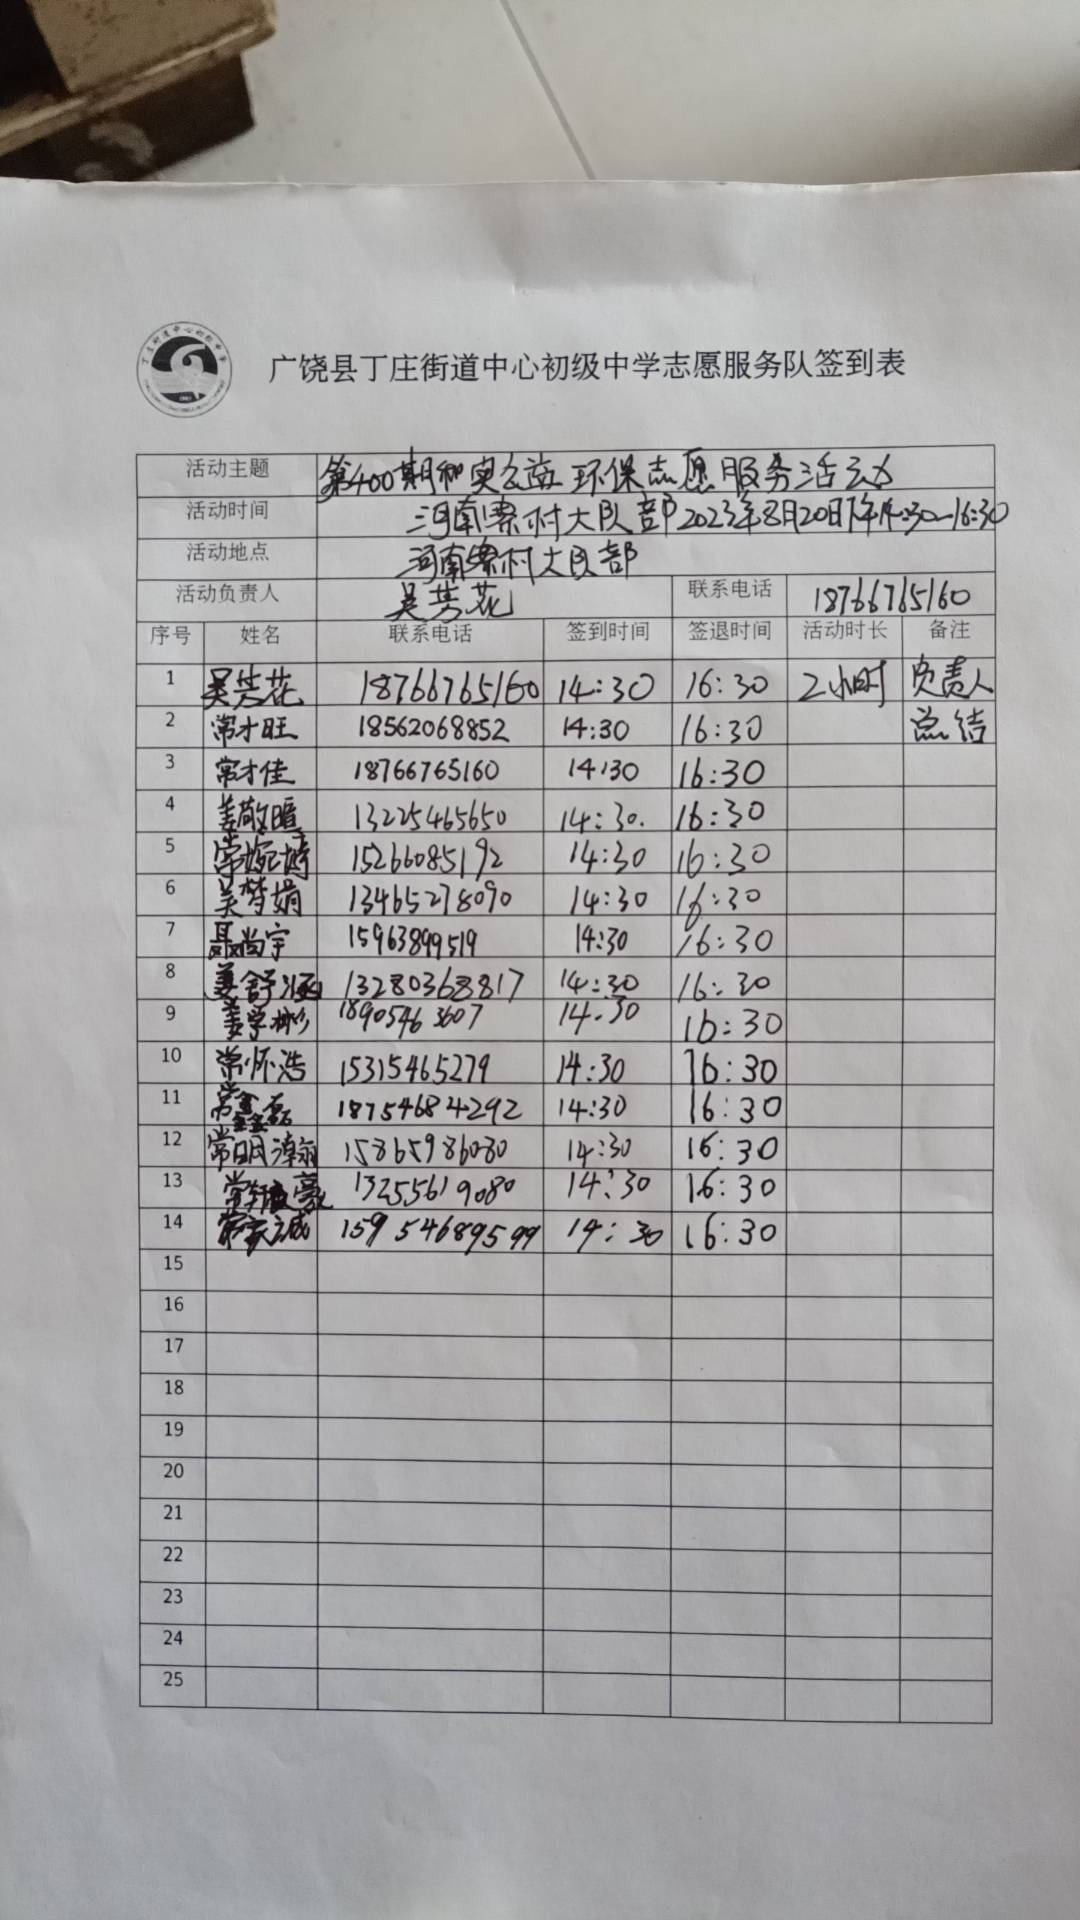 广饶县丁庄街道中心初级中学志愿服务队签到表
活动主题 第400期和奥公益环保志愿服务活动
活动时间 河南寨村大队部2023年8月20日下午14:30-16:30
活动地点 河南寨村大队部
活动负责人 吴芳花 联系电话 18766765160
序号 姓名 联系电话 签到时间 签退时间 活动时长 备注
1 吴芳花 18766765160 14:30 16:30 2小时 负责人
2 常才旺 18562068852 14:30 16:30 总结
3 常才佳 18766765160 14:30 16:30
4 姜敬暄 13225465650 14:30. 16:30
5 常婉婷 15266085192 14:30 16:30
6 吴梦娟 13465278090 14:30 16:30
7 聂尚宇 15963899519 14:30 16:30
8 姜舒涵 13280368817 14:30 16:30
9 姜学彬 18905463607 14:30 16:30
10 常怀浩 15315465279 14:30 16:30
11 常鑫磊 18754684292 14:30 16:30
12 常明瀚 15865986080 14:30 16:30
13 常 豪 13255619080 14:30 16:30
14 常 诚 15954689599 14:30 16:30
15
16
17
18
19
20
21
22
23
24
25